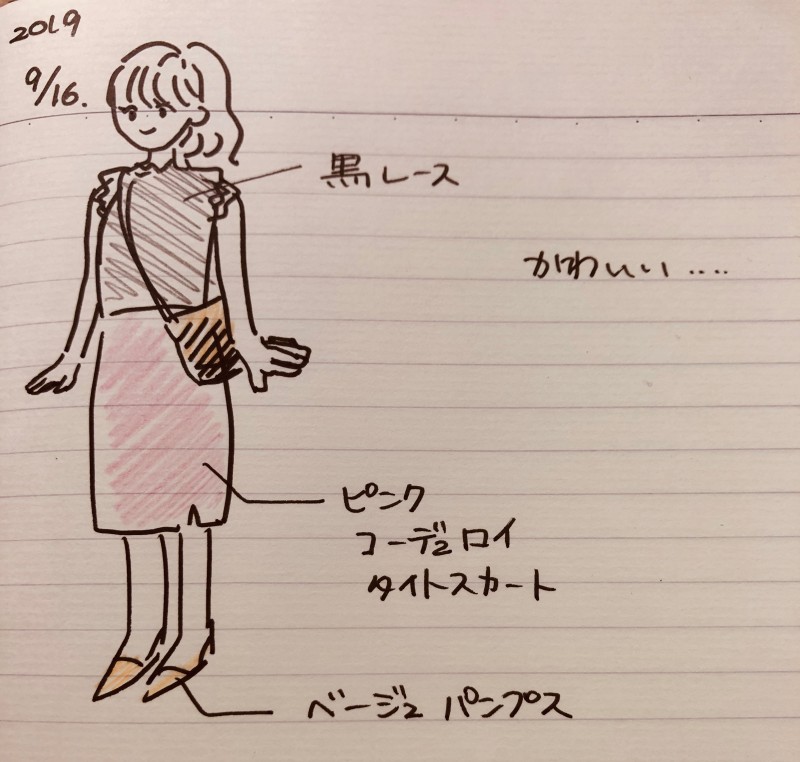 2019
9/16.
黒レース
かわいい‥‥
ピンク
コーデュロイ
タイトスカート
ベージュ パンプス